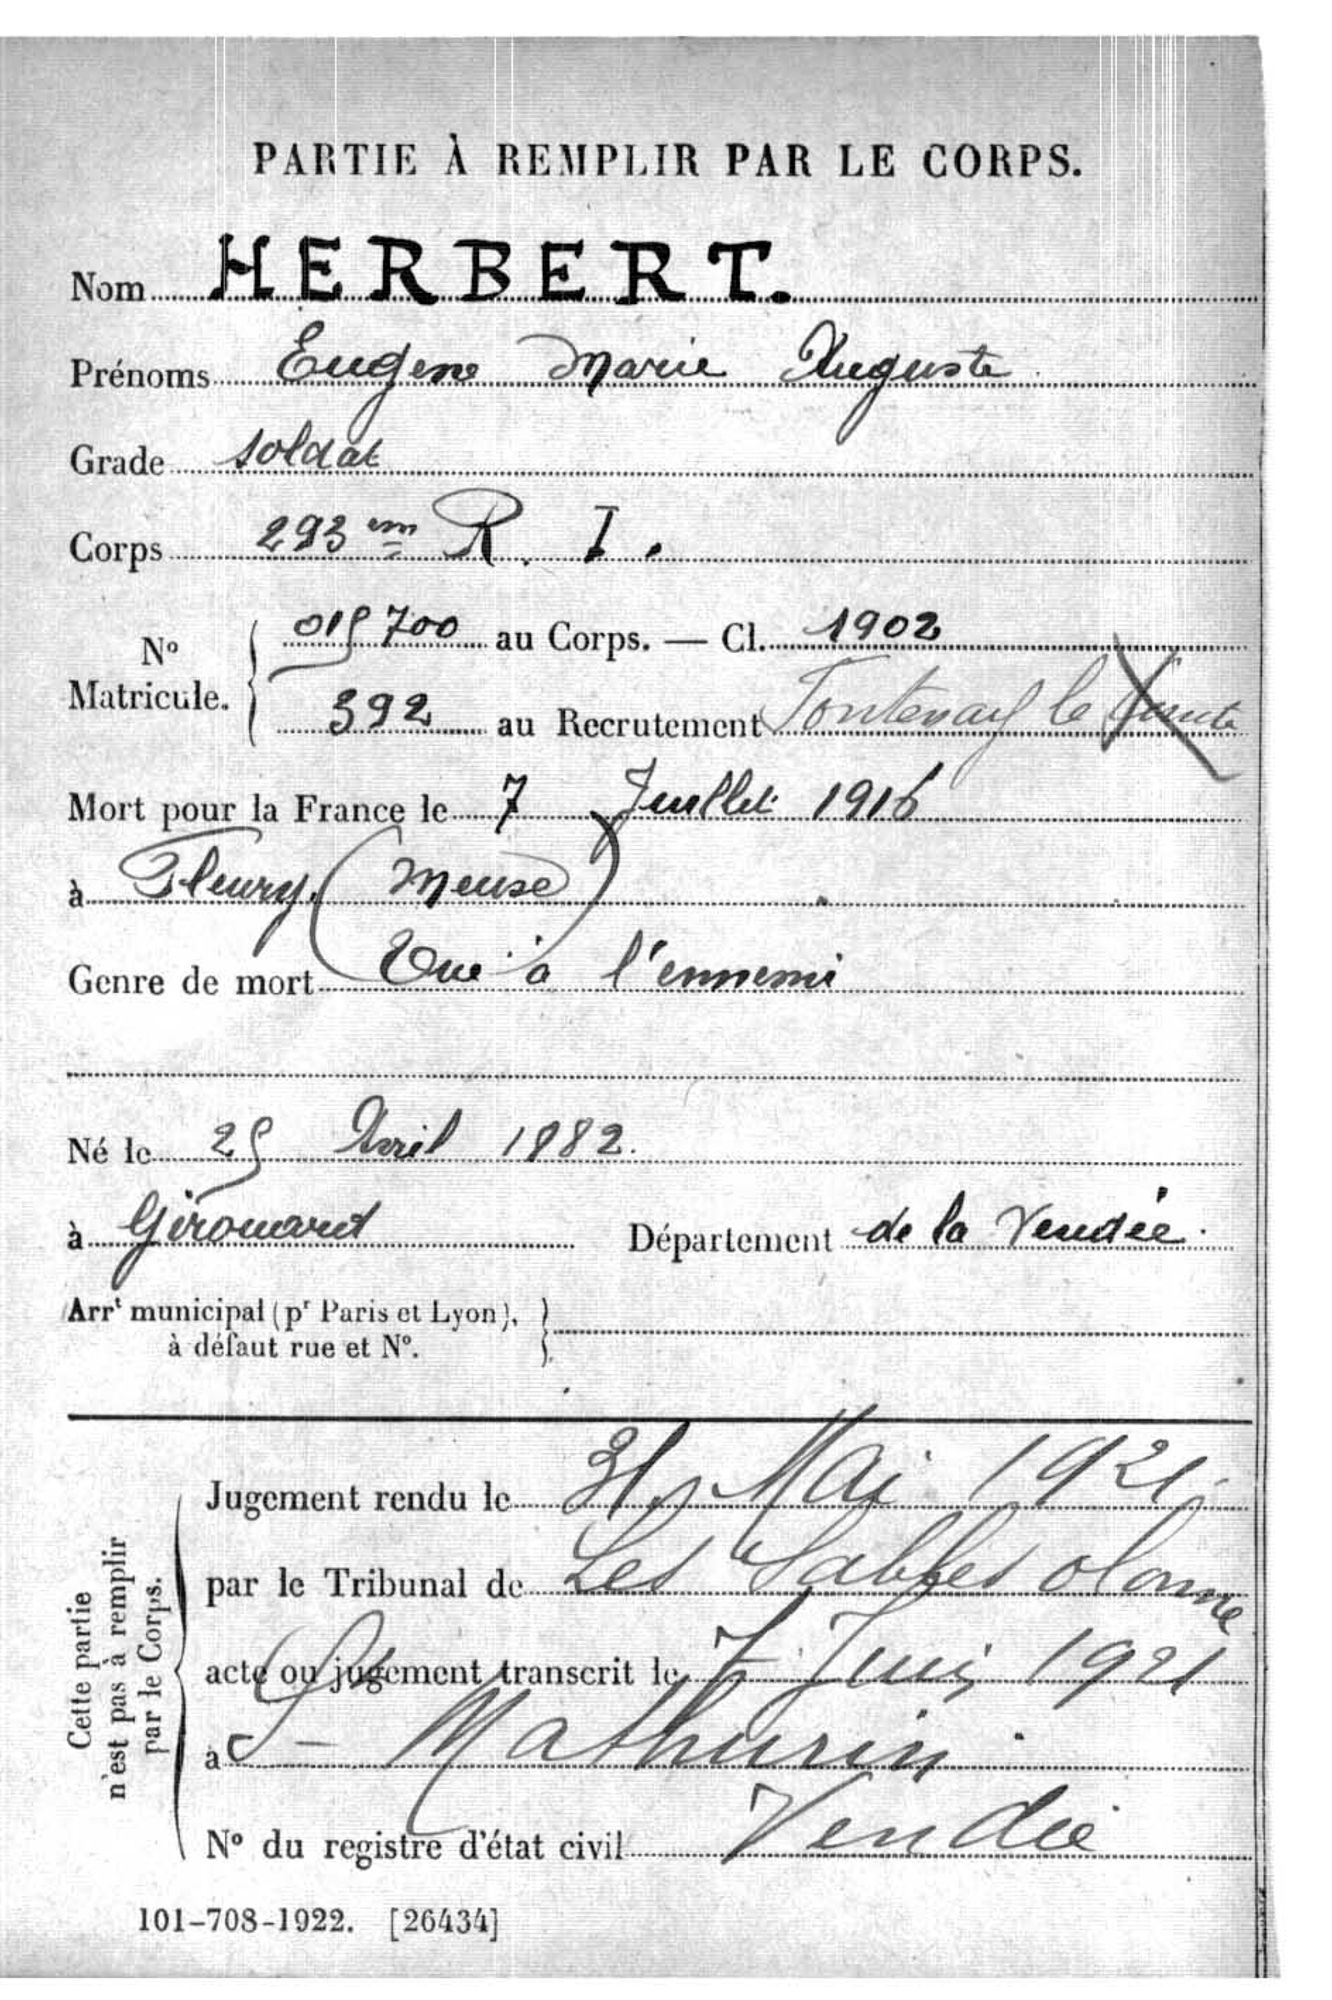 PARTIE À REMPLIR PAR LE CORPS.
Nom HERBERT.
Prénoms Eugene Marie Auguste
Grade soldat
Corps 293 em R. I.
N° Matricule. 015700 au Corps. — Cl. 1902
392 au Recrutement Fontenay le Comte
Mort pour la France le 7 Juillet 1916
à Fleury (Meuse)
Genre de mort Tué à l'ennemi
Né le 25 Avril 1882.
à Girouard Département de la Vendée.
Arrt municipal (pr Paris et Lyon),
à défaut rue et N°.
Cette partie
n'est pas à remplir
par le Corps.
Jugement rendu le 31 Mai 1921
par le Tribunal de Les Sables olonne
acte ou jugement transcrit le 7 Juin 1921
à St Mathurin
N° du registre d'état civil Vendée
101-708-1922. [26434]